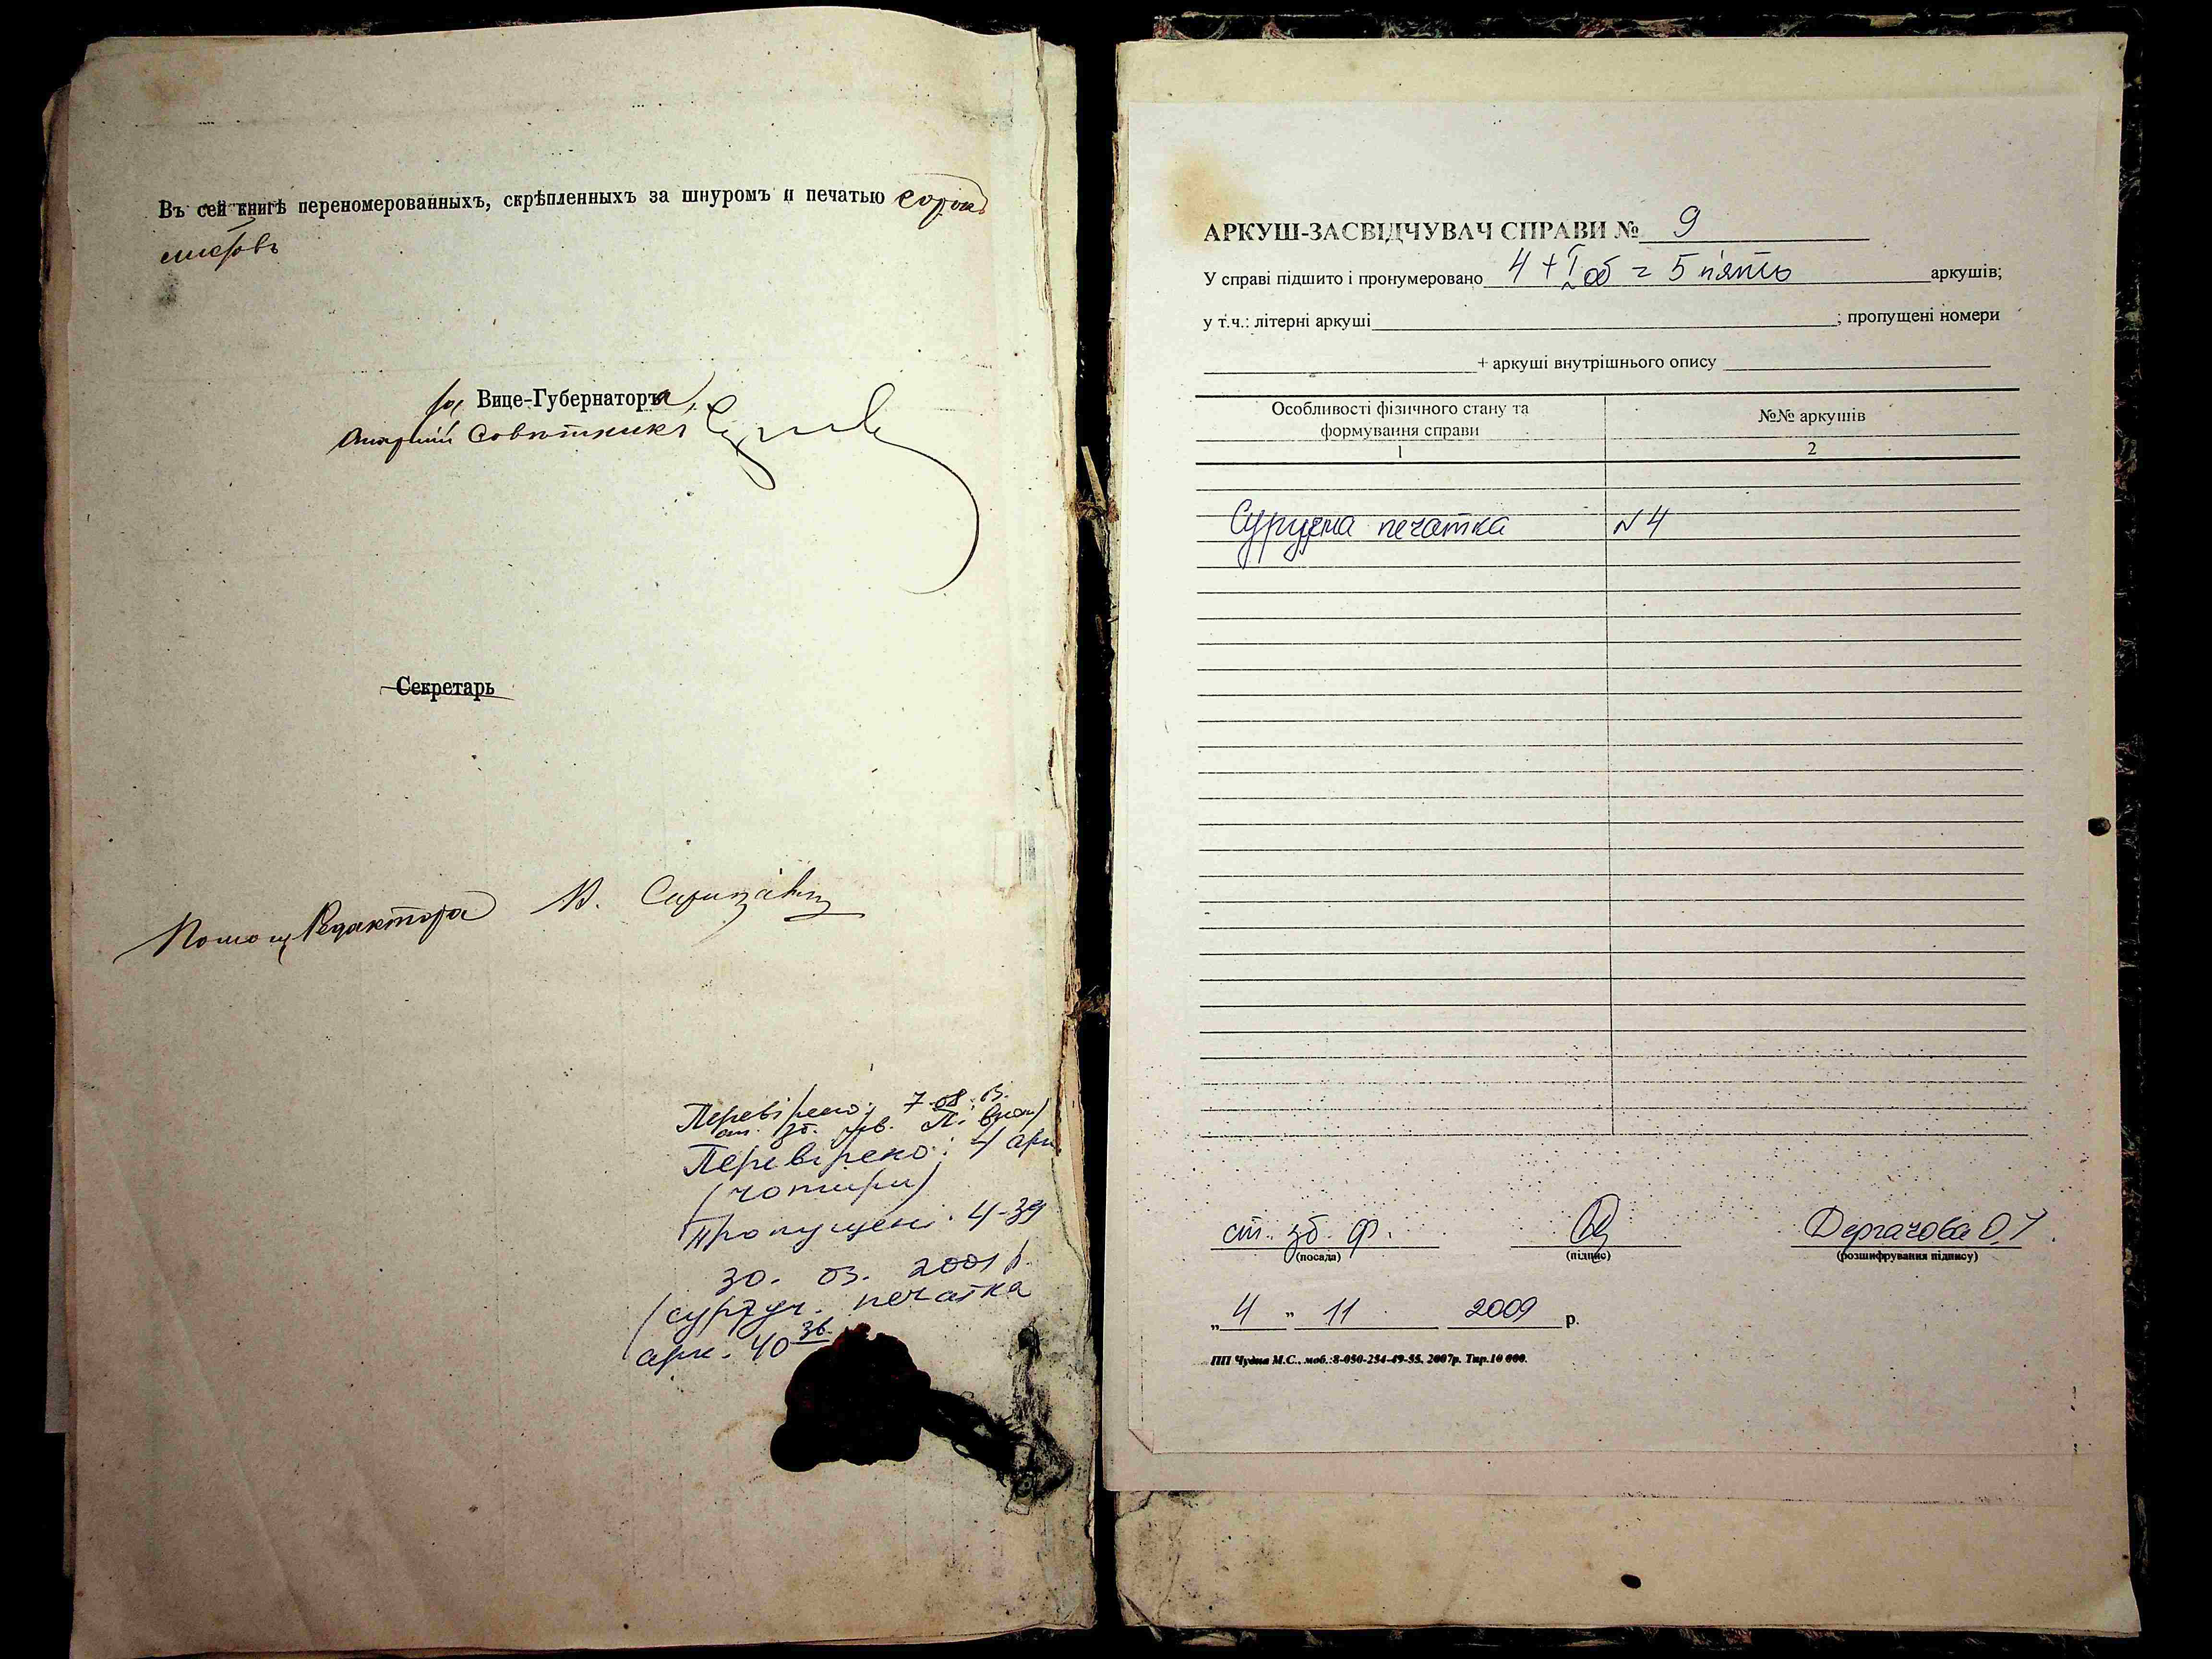 Въ сей книгѣ переномерованныхъ, скрѣпленныхъ за шнуромъ и печатью сорокъ
листовъ
За Вице-Губернатора,
Старшій Совѣтникъ
Секретарь
Помощ. Редактора В.
Перевірено: 7.08.
ст. зб.
Перевірено: 4 арк
(чотири)
Пропущені: 4-39
30. 03. 2001 р.
(сургуч. печатка
арк. 40 зв.
АРКУШ-ЗАСВІДЧУВАЧ СПРАВИ № 9
У справі підшито і пронумеровано 4 + I об = 5 п'ять аркушів;
у т.ч.: літерні аркуші ; пропущені номери
+ аркуші внутрішнього опису
Особливості фізичного стану та формування справи
№№ аркушів
1
2
Сургучна печатка №4
ст. зб. ф.
Дергачова О.
(посада) (підпис) (розшифрування підпису)
„ 4 " 11 2009 р.
ПП Чудна М.С., моб.:8-050-254-49-55. 2007р. Тир.10 000.